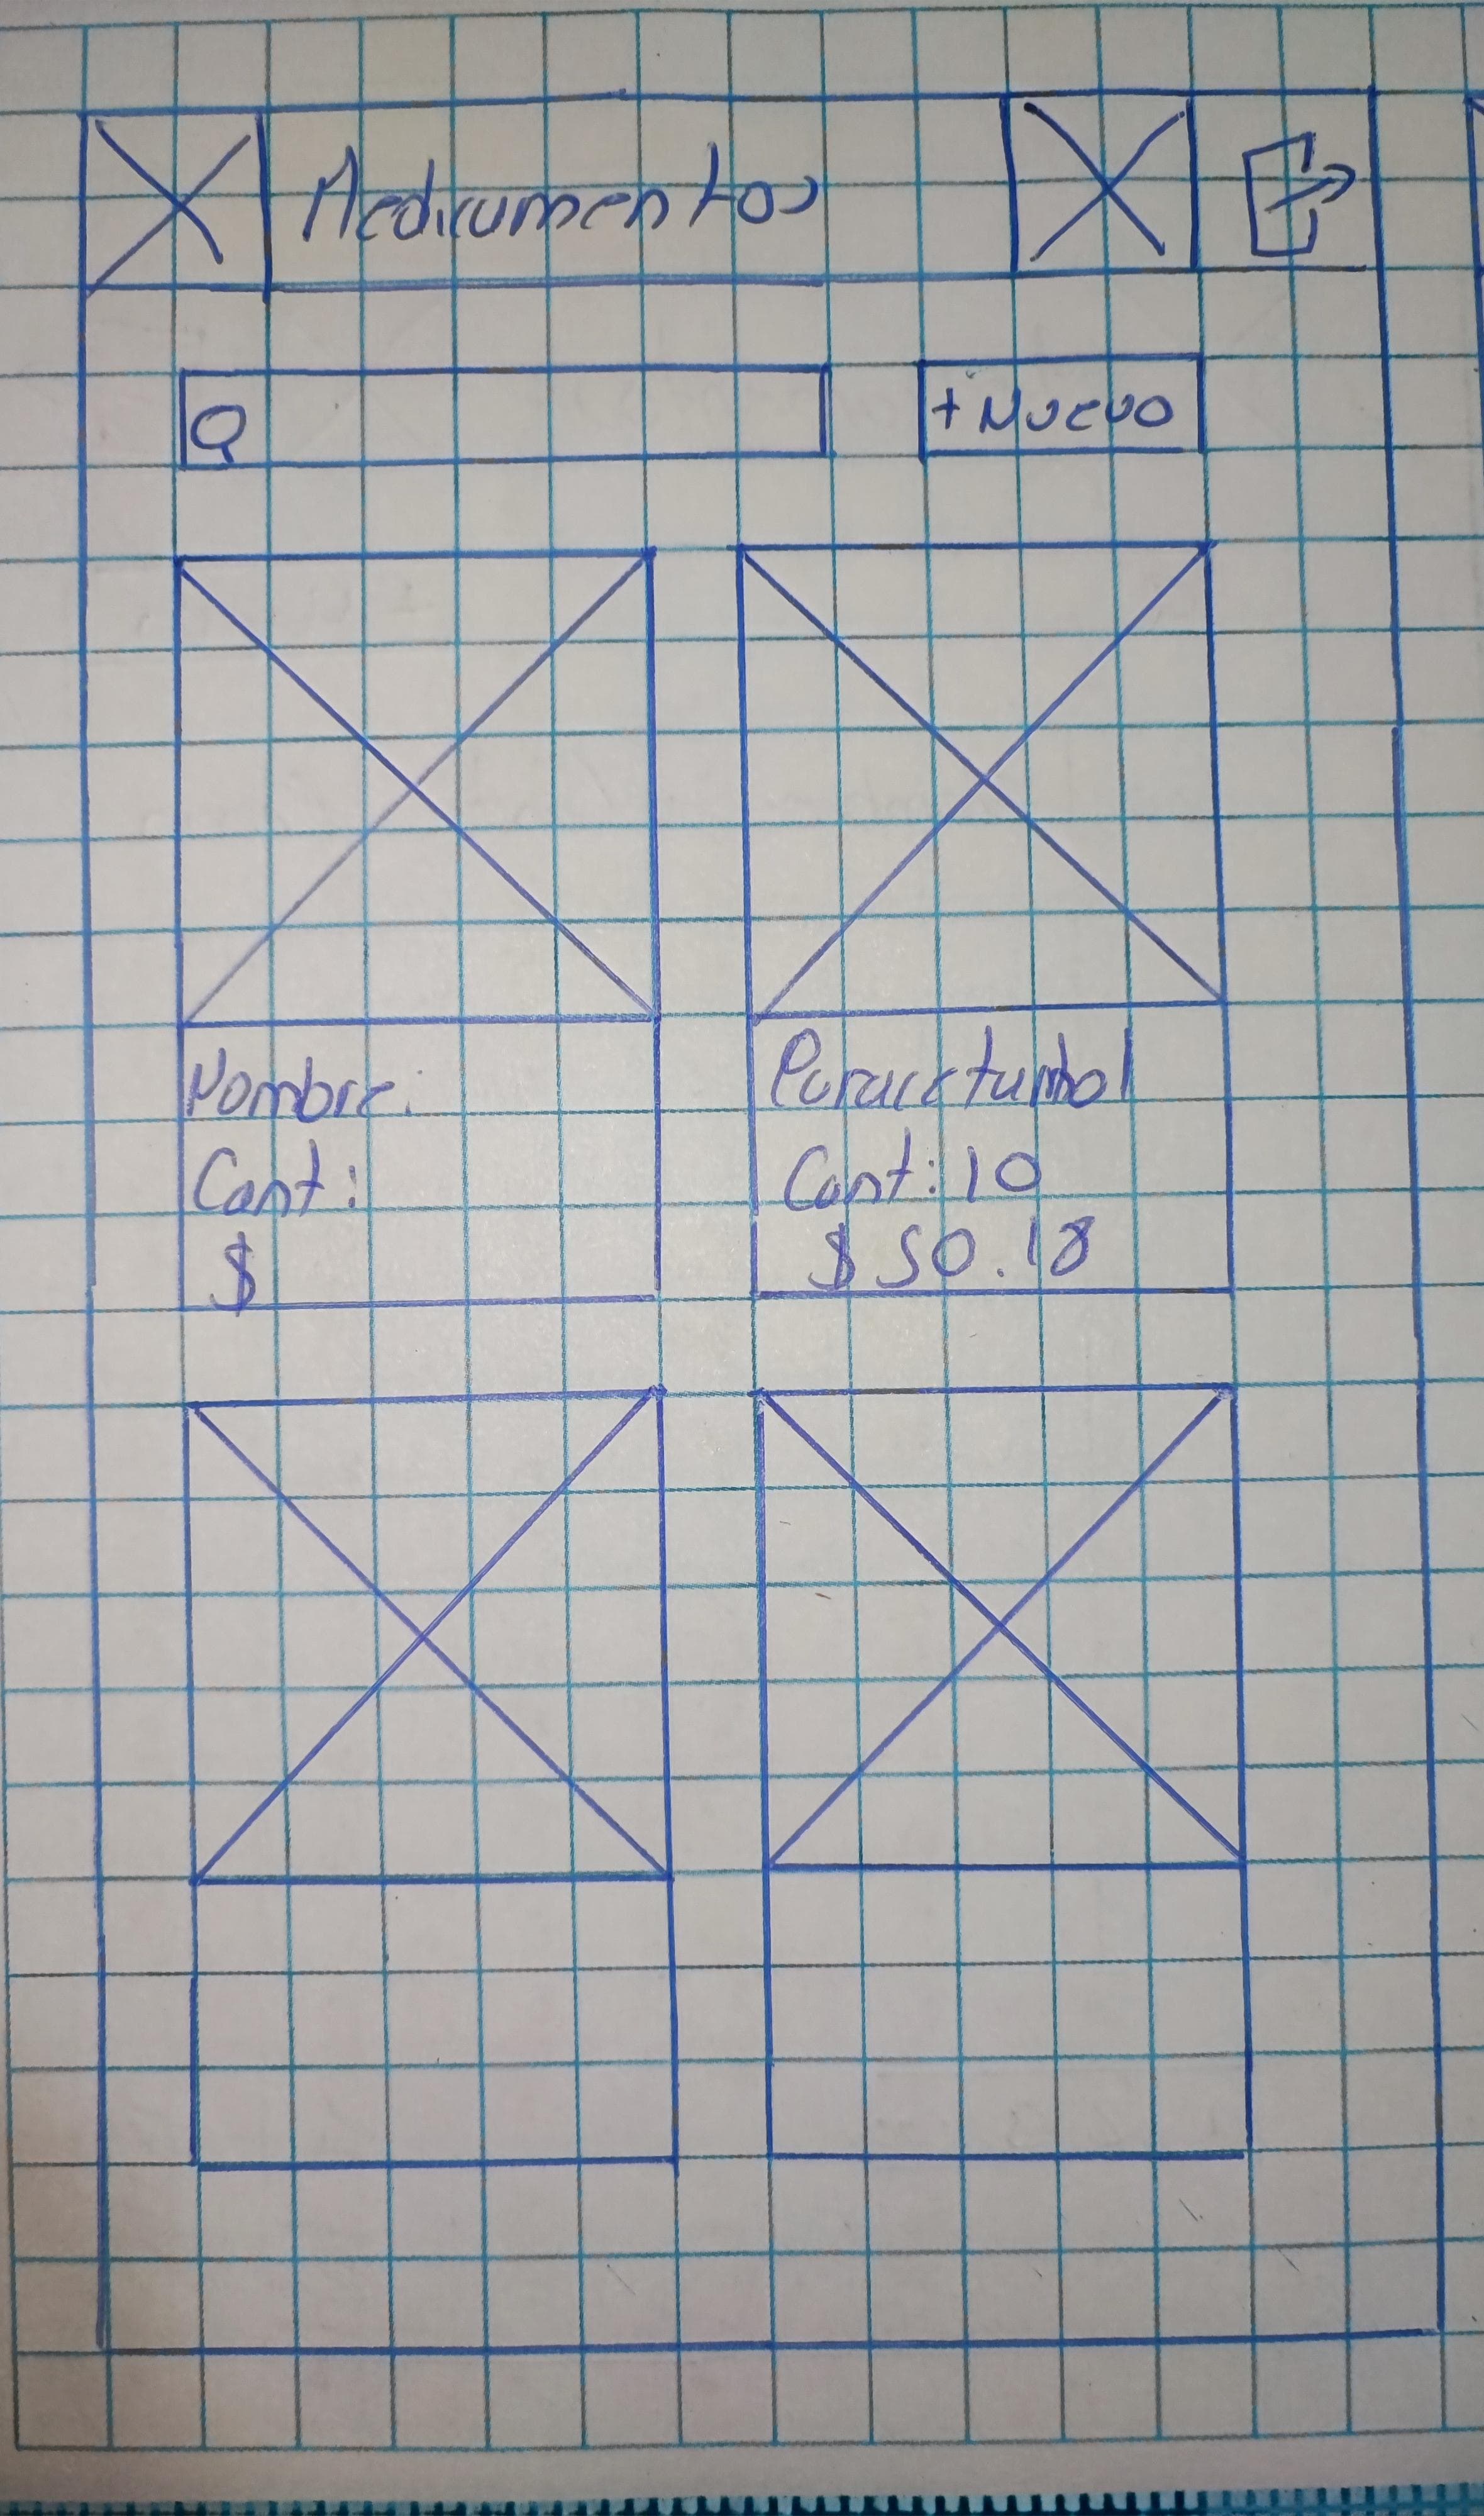 Medicamentos
+ Nuevo
Nombre:
Cant:
$
Paracetamol
Cant: 10
$ 50.18